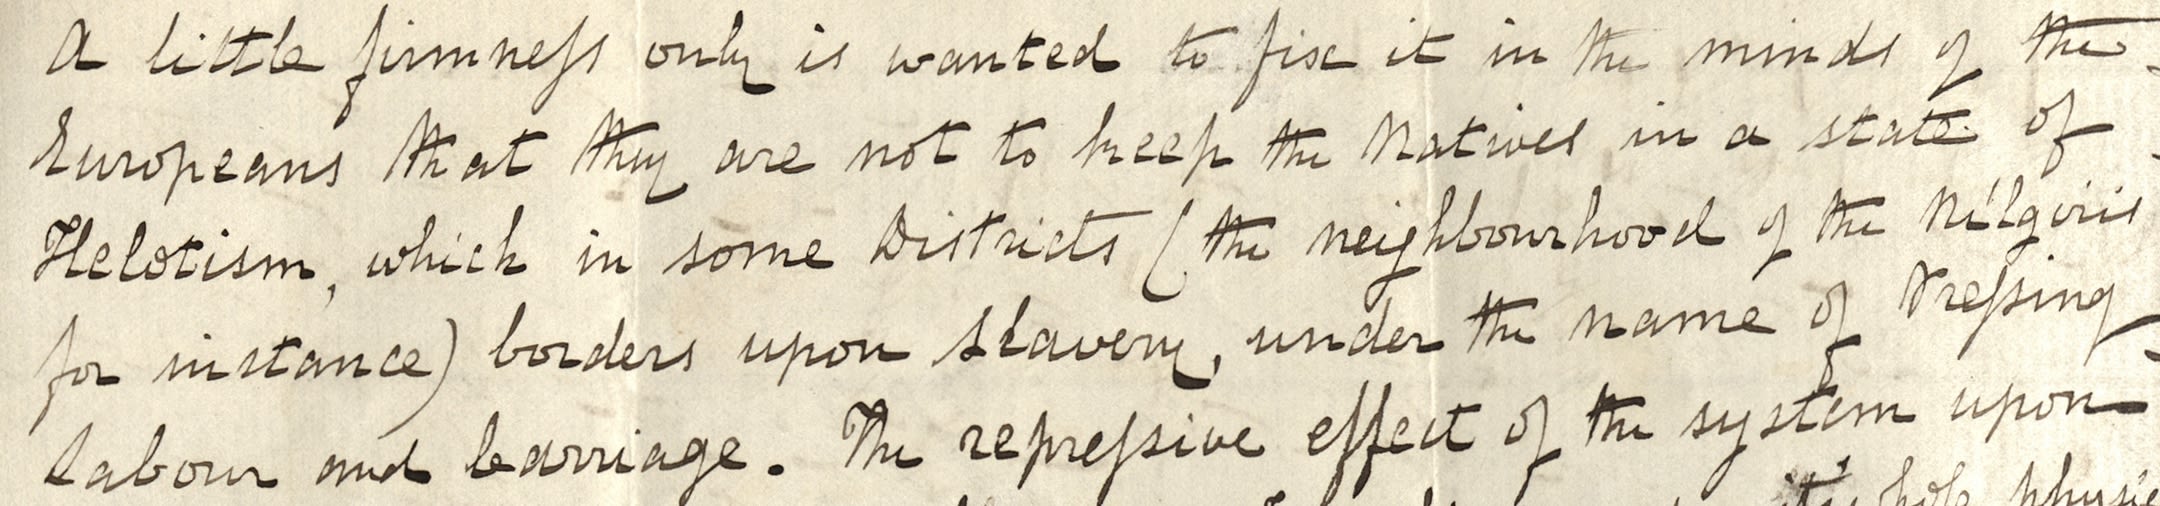 A little firmness only is wanted to fix it in the minds of the
Europeans that they are not to keep the Natives in a state of
Helotism, which in some Districts (the neighbourhood of the Nílgiris
for instance) borders upon slavery, under the name of Pressing
labour and carriage. The repressive effect of the system upon
whole physic